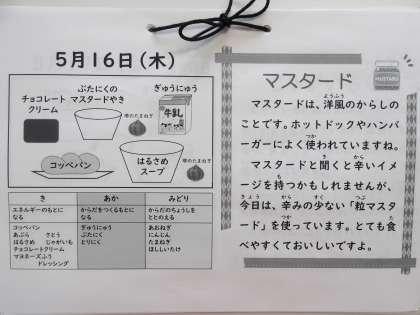 5月16日(木)
ぶたにくの
マスタードやき
ぎゅうにゅう
チョコレート
クリーム
牛乳
県のたまねぎ
コッペパン
はるさめ
スープ
県のたまねぎ
き
あか
みどり
エネルギーのもとに
なる
からだをつくるもとに
なる
からだのちょうしを
ととのえる
コッペパン
あぶら さとう
はるさめ じゃがいも
チョコレートクリーム
マヨネーズふう
ドレッシング
ぎゅうにゅう
ぶたにく
とりにく
あおねぎ
にんじん
たまねぎ
ほししいたけ
マスタード
MUSTARD
マスタードは、洋風のからしの
ことです。ホットドックやハンバ
ーガーによく使われていますね。
マスタードと聞くと辛いイメ
ージを持つかもしれませんが、
今日は、辛みの少ない「粒マスタ
ード」を使っています。とても食
べやすくておいしいですよ。